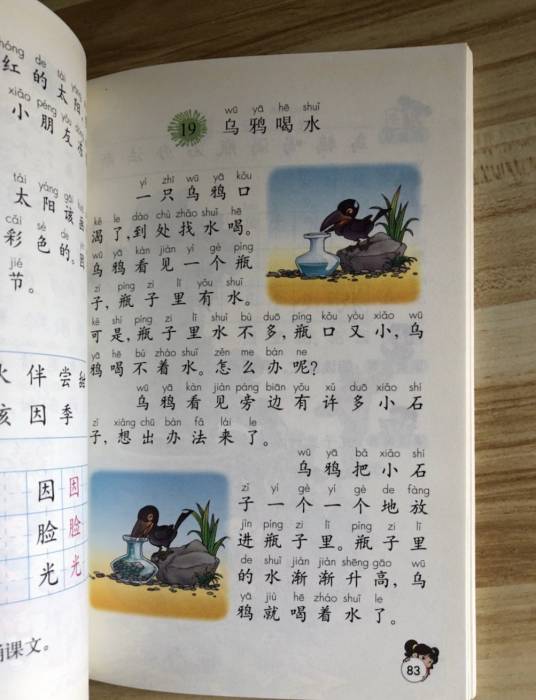 de tài
红 的 太 阳
xiǎo péng yǒu
小 朋 友
tài yáng gāi
太 阳 该 画
cǎi sè de
彩 色 的。 因
jié
节。
伴 尝
因 季
因 因
脸 脸
光 光
课文。
wū yā hē shuǐ
19 乌 鸦 喝 水
yì zhī wū yā kǒu
一 只 乌 鸦 口
kě le dào chù zhǎo shuǐ hē
渴 了，到 处 找 水 喝。
wū yā kàn jiàn yí gè píng
乌 鸦 看 见 一 个 瓶
zi píng zi lǐ yǒu shuǐ
子，瓶 子 里 有 水。
kě shì píng zi lǐ shuǐ bù duō píng kǒu yòu xiǎo wū
可 是，瓶 子 里 水 不 多，瓶 口 又 小，乌
yā hē bù zháo shuǐ zěn me bàn ne
鸦 喝 不 着 水。怎 么 办 呢？
wū yā kàn jiàn páng biān yǒu xǔ duō xiǎo shí
乌 鸦 看 见 旁 边 有 许 多 小 石
zǐ xiǎng chū bàn fǎ lái le
子，想 出 办 法 来 了。
wū yā bǎ xiǎo shí
乌 鸦 把 小 石
zǐ yí gè yí gè de fàng
子 一 个 一 个 地 放
jìn píng zi lǐ píng zi lǐ
进 瓶 子 里。瓶 子 里
de shuǐ jiàn jiàn shēng gāo wū
的 水 渐 渐 升 高，乌
yā jiù hē zháo shuǐ le
鸦 就 喝 着 水 了。
83